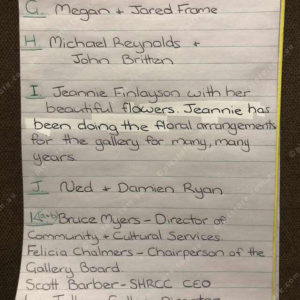 G. Megan + Jared Frame
H. Michael Reynolds +
John Britten
I. Jeannie Finlayson with her
beautiful flowers. Jeannie has
been doing the floral arrangements
for the gallery for many, many
years.
J. Ned + Damien Ryan
K(a+b) Bruce Myers - Director of
Community + Cultural Services.
Felicia Chalmers - Chairperson of the
Gallery Board.
Scott Barber - SHRCC CEO